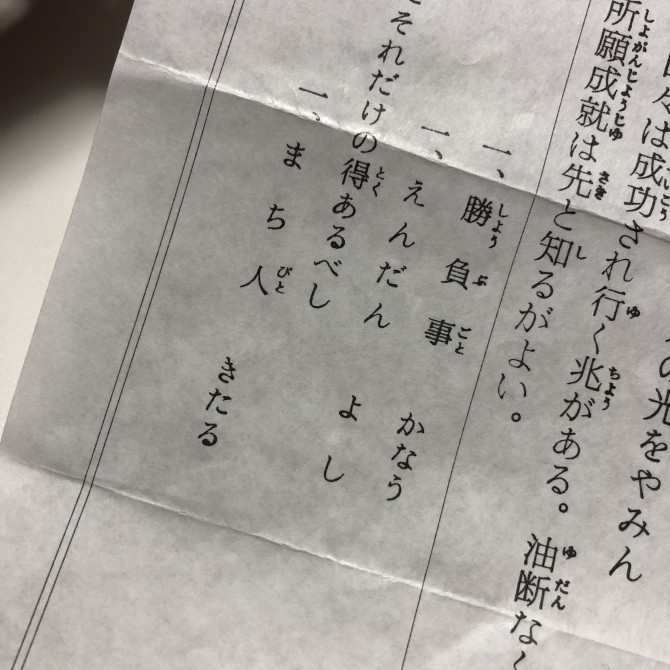 の光をやみん
は成功され行く兆がある。油断な
所願成就は先と知るがよい。
一、勝負事 かなう
一、えんだん よし
それだけの得あるべし
一、まち人 きたる